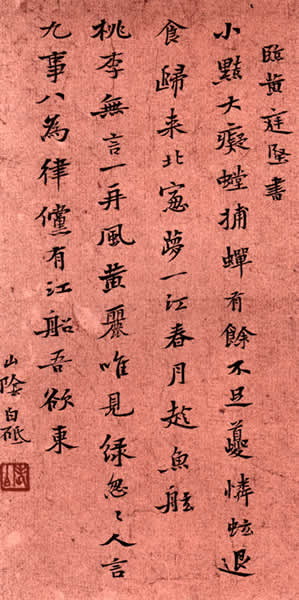 臨黄庭堅書
小黠大癡螳捕蟬有餘不足夔憐蚿退
食歸来北窓夢一江春月趁魚舡
桃李無言一再風黄麗唯見緑怱〻人言
九事八為律儻有江船吾欲東
山陰白砥